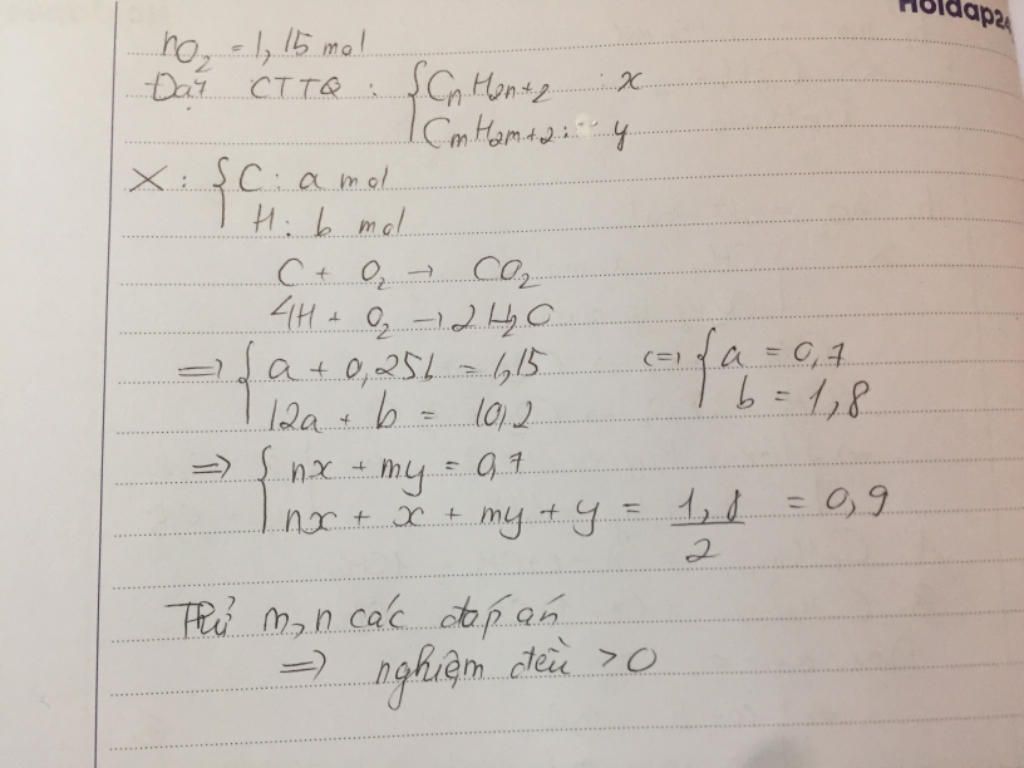 Hoidap24
nO2 = 1,15 mol
Đặt CTTQ : { CnH2n+2 : x
CmH2m+2 : y
X : { C : a mol
H : b mol
C + O2 → CO2
4H + O2 → 2H2O
=> { a + 0,25b = 1,15 <=> { a = 0,7
12a + b = 10,2 b = 1,8
=> { nx + my = 0,7
nx + x + my + y = 1,8/2 = 0,9
Thử m,n các đáp án
=> nghiệm đều > 0